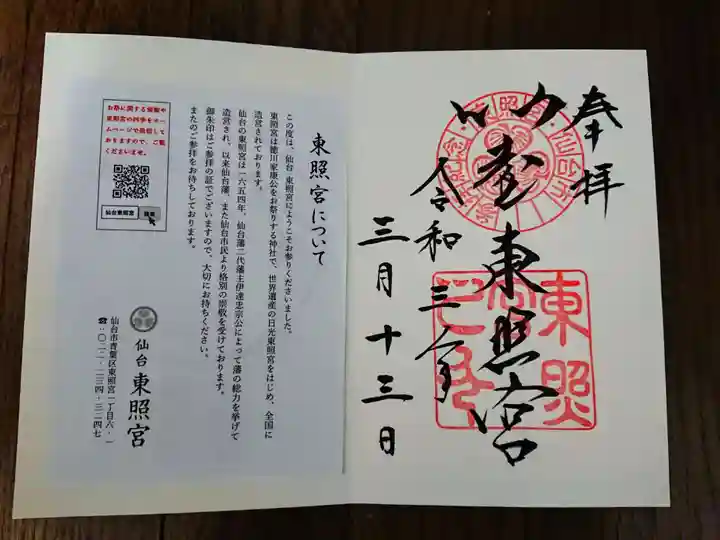 奉拝
仙台東照宮
令和三年
三月十三日
東照
宮
東照宮について
この度は、仙台 東照宮にようこそお参りくださいました。
東照宮は徳川家康公をお祭りする神社で、世界遺産の日光東照宮をはじめ、全国に
造営されております。
仙台の東照宮は一六五四年、仙台藩二代藩主伊達忠宗公によって藩の総力を挙げて
造営され、以来仙台藩、また仙台市民より格別の崇敬を受けております。
御朱印はご参拝の証でございますので、大切にお持ちください。
またのご参拝をお待ちしております。
お祭に関する情報や
東照宮の四季をホー
ムページで発信して
おりますので、ご覧
くださいませ。
仙台東照宮
検索
仙台 東照宮
仙台市青葉区東照宮一丁目六‐一
☎：〇二二‐二三四‐三二四七